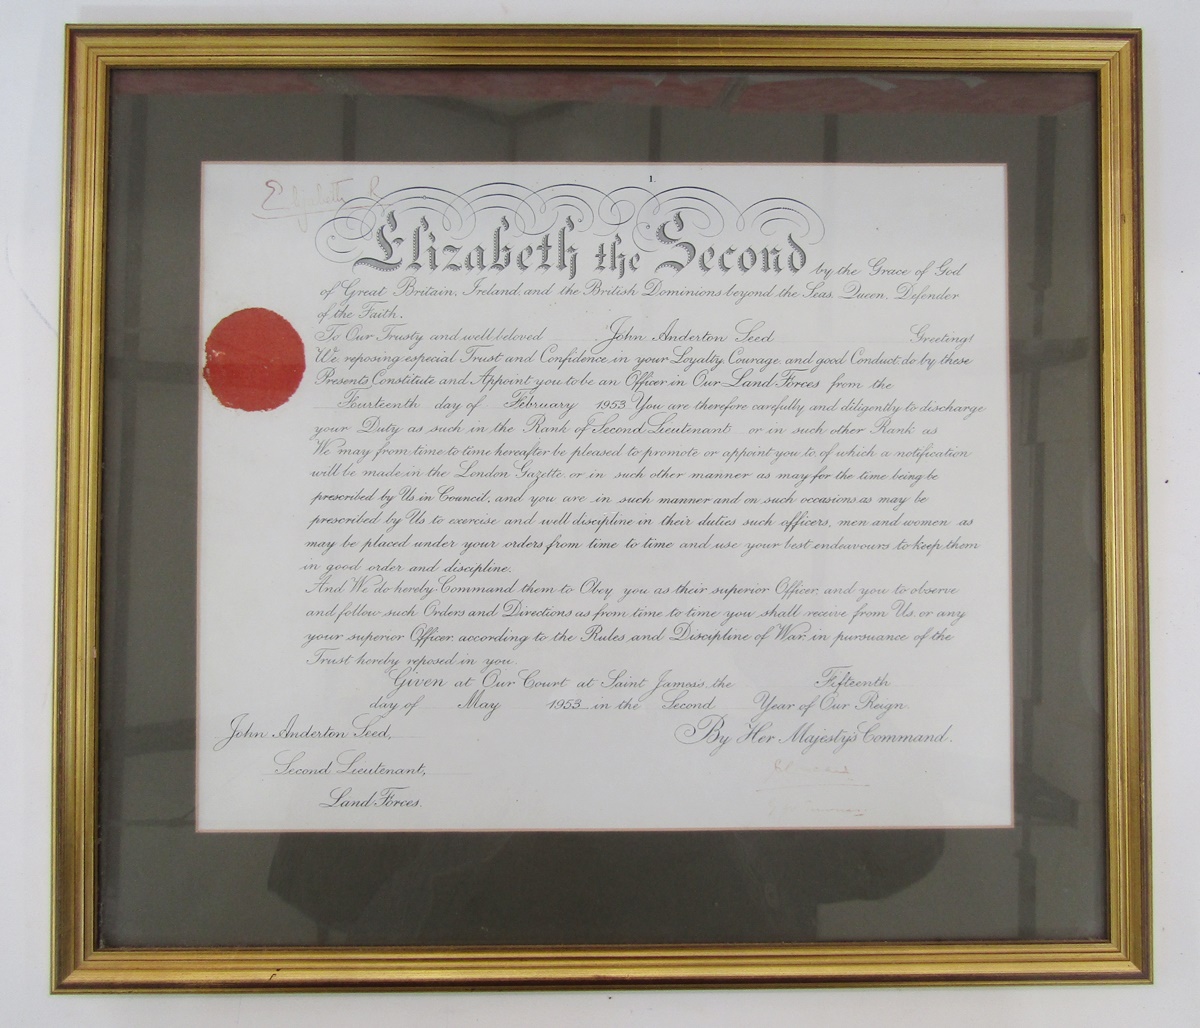 1.
Elizabeth R
Elizabeth the Second by the Grace of God
of Great Britain, Ireland, and the British Dominions beyond the Seas, Queen, Defender
of the Faith.
To Our Trusty and well beloved John Anderton Seed Greeting!
We, reposing especial Trust and Confidence in your Loyalty, Courage, and good Conduct, do by these
Presents Constitute and Appoint you to be an Officer in Our Land Forces from the
Fourteenth day of February 1953 You are therefore carefully and diligently to discharge
your Duty as such in the Rank of Second Lieutenant or in such other Rank as
We may from time to time hereafter be pleased to promote or appoint you to, of which a notification
will be made in the London Gazette, or in such other manner as may for the time being be
prescribed by Us in Council, and you are in such manner and on such occasions as may be
prescribed by Us to exercise and well discipline in their duties such officers, men and women as
may be placed under your orders from time to time and use your best endeavours to keep them
in good order and discipline.
And We do hereby Command them to Obey you as their superior Officer, and you to observe
and follow such Orders and Directions as from time to time you shall receive from Us, or any
your superior Officer, according to the Rules and Discipline of War, in pursuance of the
Trust hereby reposed in you.
Given at Our Court at Saint James's, the Fifteenth
day of May 1953 in the Second Year of Our Reign.
John Anderton Seed, By Her Majesty's Command.
Second Lieutenant,
Land Forces.